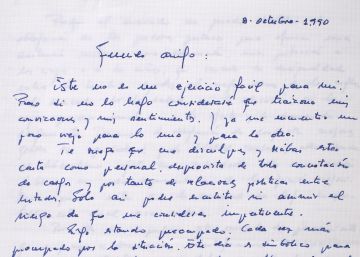 8. octubre - 1990
Querido amigo:
Este no es un ejercicio fácil para mi.
Pero si no lo hago consideraré que traiciono mis
convicciones y mis sentimientos. Y ya me encuentro un
poco viejo para lo uno y para lo otro.
Te ruego que me disculpes y recibas esta
carta como personal, desprovista de toda connotación
de cargo y por tanto de relaciones políticas entre
Solo así puedo escribirte sin asumir el
riesgo de que me consideres impertinente.
Sigo estando preocupado. Cada vez más
preocupado por la situación. Este día es simbólico para